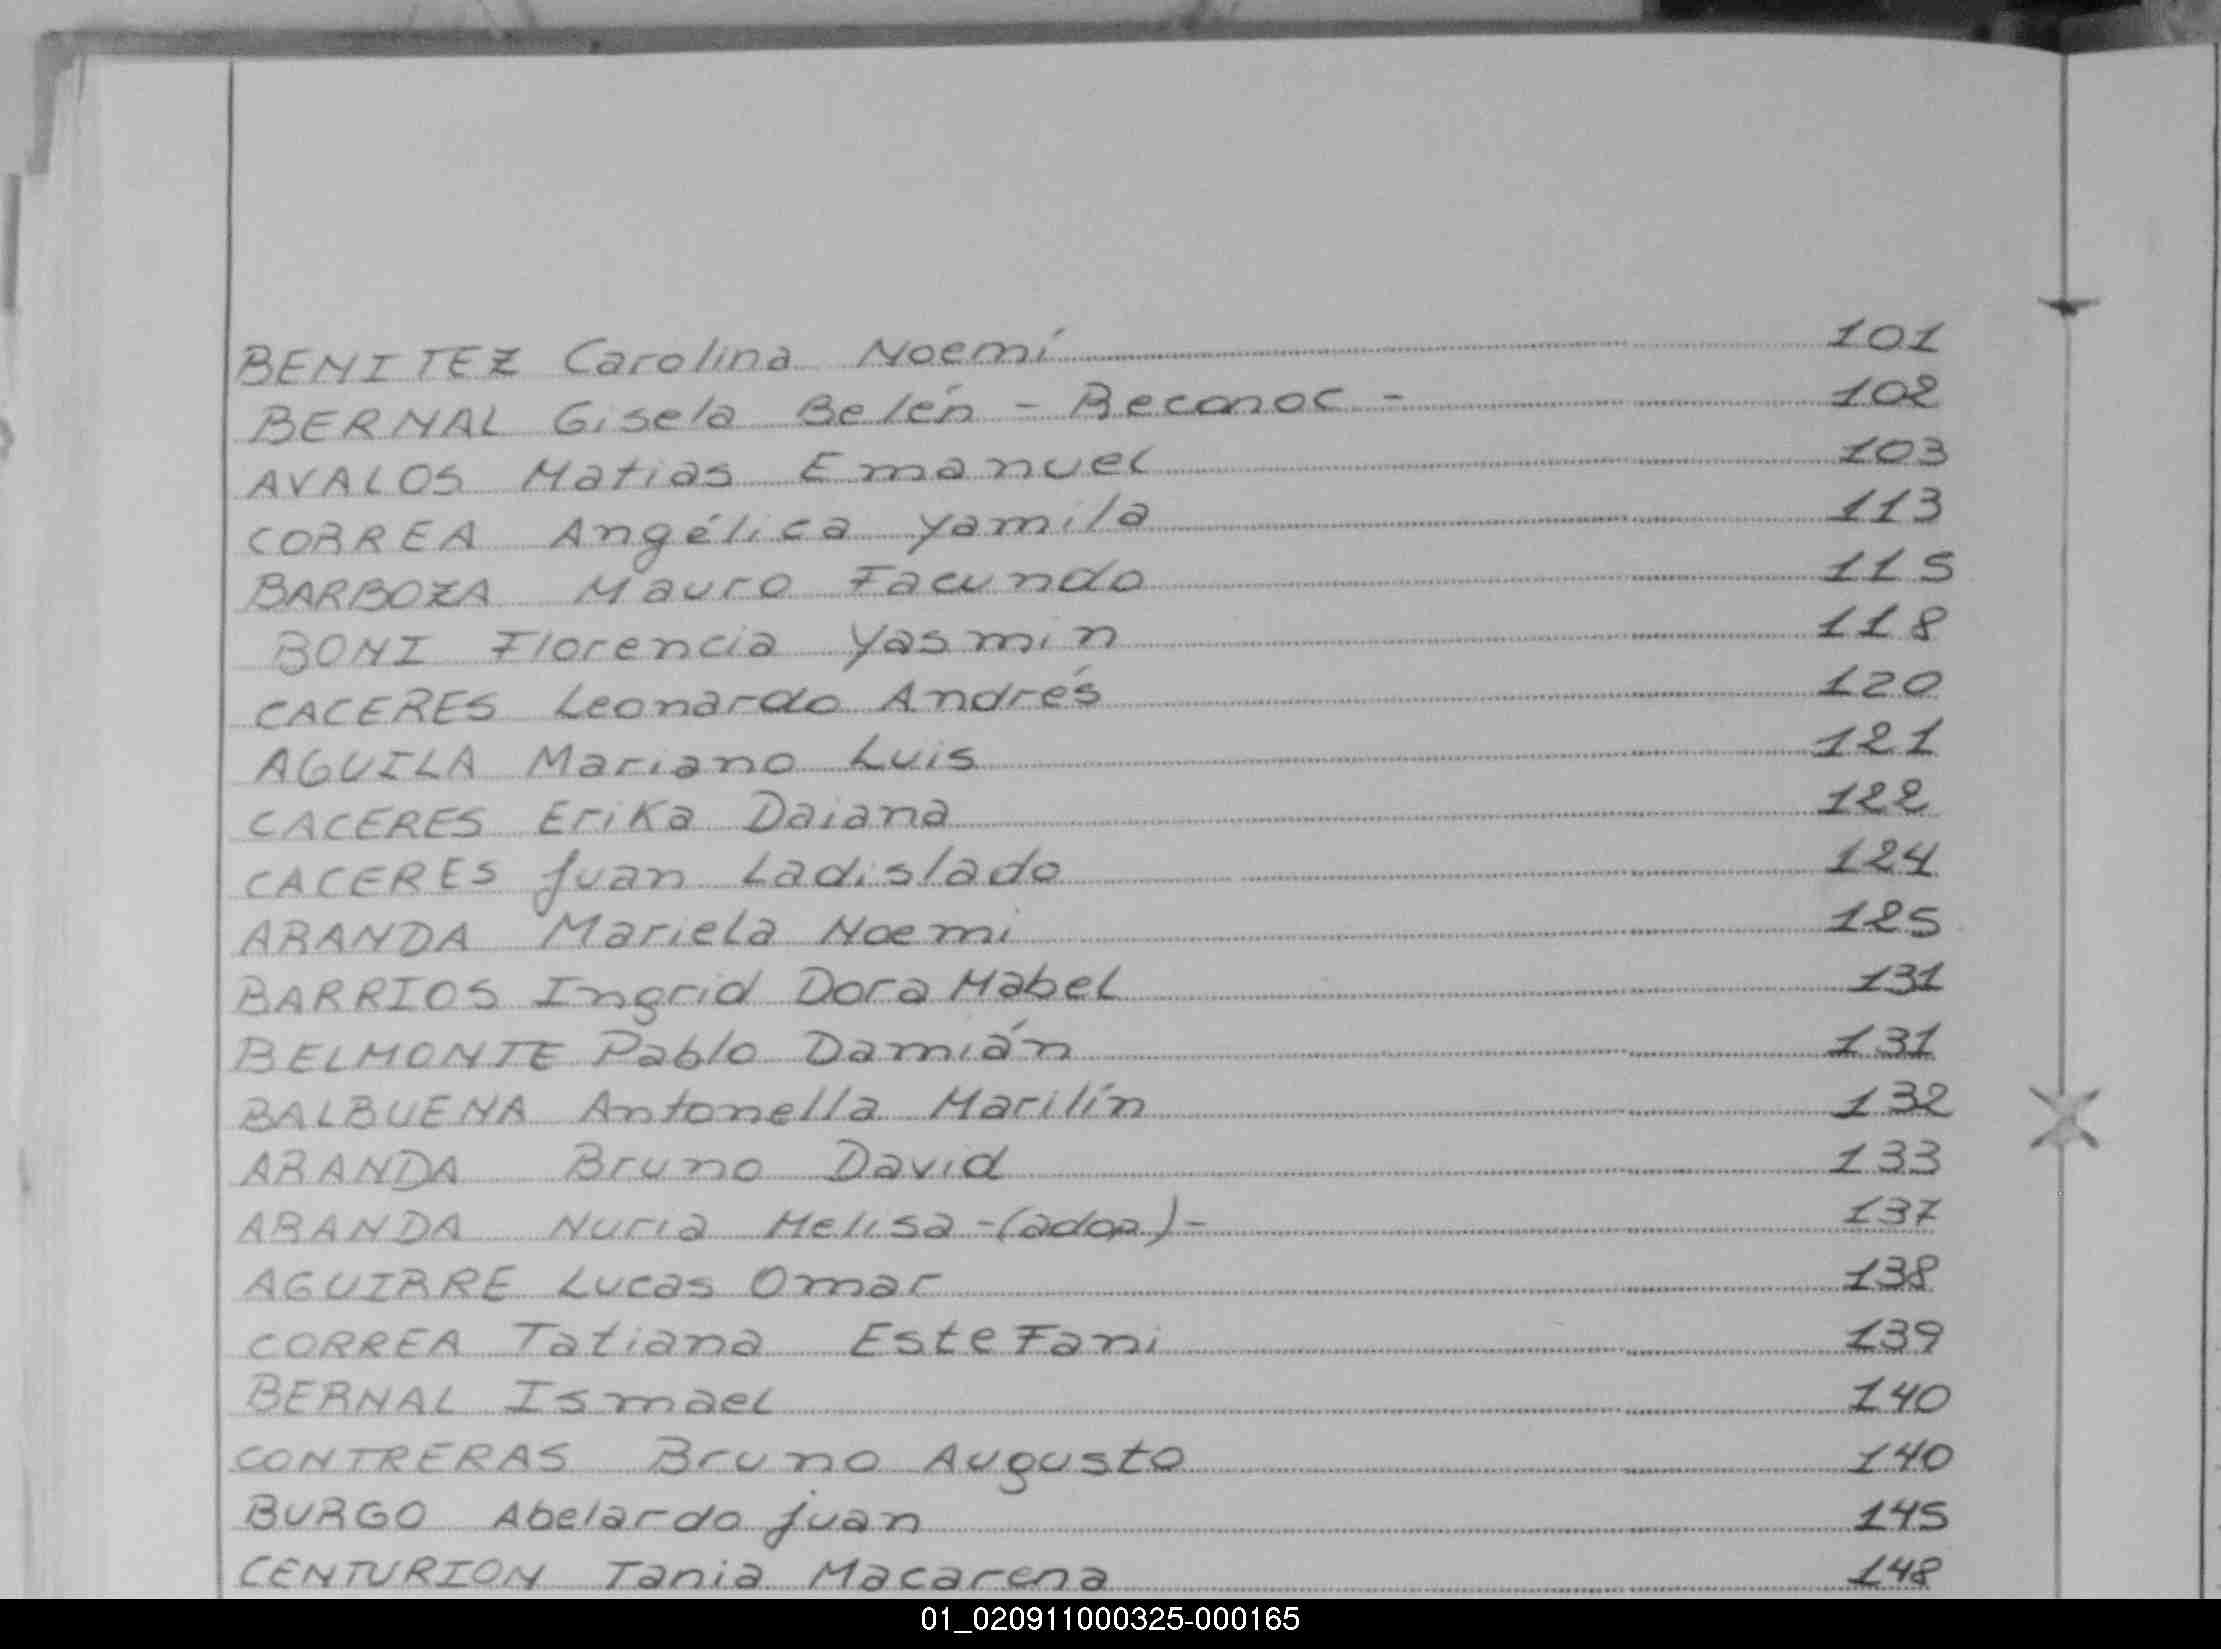 BENITEZ Carolina Noemí 101
BERNAL Gisela Belén - Reconoc - 102
AVALOS Matias Emanuel 103
CORREA Angélica Yamila 113
BARBOZA Mauro Facundo 115
BONI Florencia Yasmin 118
CACERES Leonardo Andrés 120
AGUILA Mariano Luis 121
CACERES Erika Daiana 122
CACERES Juan Ladislado 124
ARANDA Mariela Noemi 125
BARRIOS Ingrid Dora Mabel 131
BELMONTE Pablo Damián 131
BALBUENA Antonella Marilín 132
ARANDA Bruno David 133
ARANDA Nuria Melisa -(adop)- 137
AGUIRRE Lucas Omar 138
CORREA Tatiana Estefani 139
BERNAL Ismael 140
CONTRERAS Bruno Augusto 140
BURGO Abelardo Juan 145
CENTURION Tania Macarena 148
01_020911000325-000165